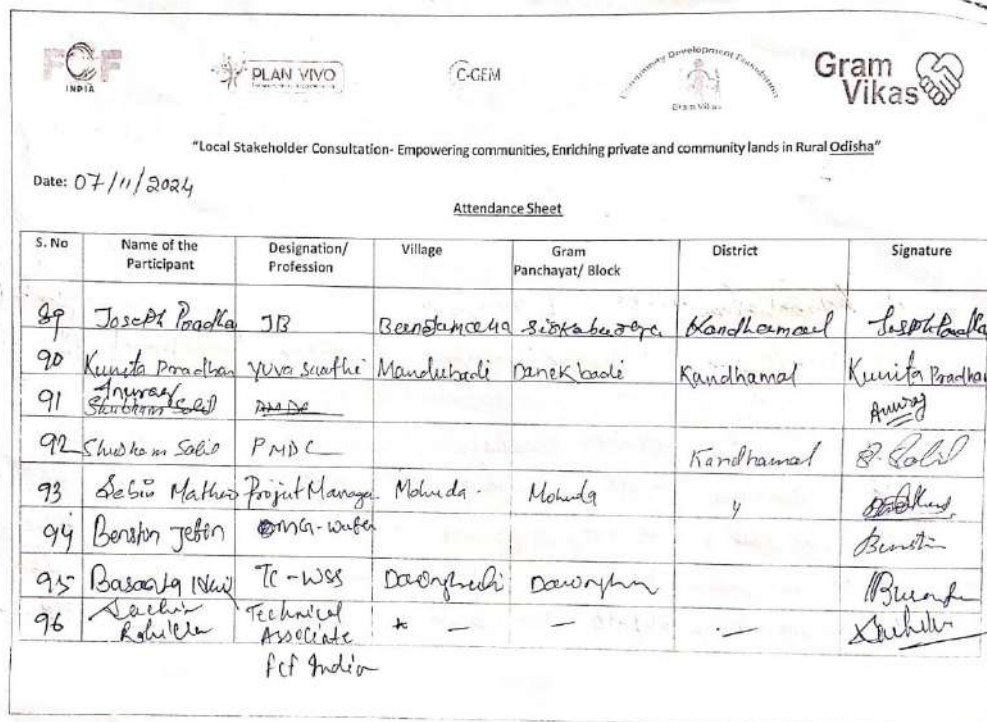 FCF
INDIA
PLAN VIVO
C-GEM
Community Development Foundation
Gram Vikas
Gram
Vikas
"Local Stakeholder Consultation- Empowering communities, Enriching private and community lands in Rural Odisha"
Date: 07/11/2024
Attendance Sheet
S. No Name of the Participant Designation/ Profession Village Gram Panchayat/ Block District Signature
89 Joseph Pradha JB Kandhamal
90 Kunita Pradhan Yuva Saathi Mandubadi Danekbadi Kandhamal Kunita Pradhan
91 Anurag Anurag
92 Shubham Sabil PMDC Kandhamal S. Sabil
93 Project Manager Mohuda Mohuda
94 Benstin Benstin
95 TC-WSS
96 Sachin Technical Associate FCF India — — —